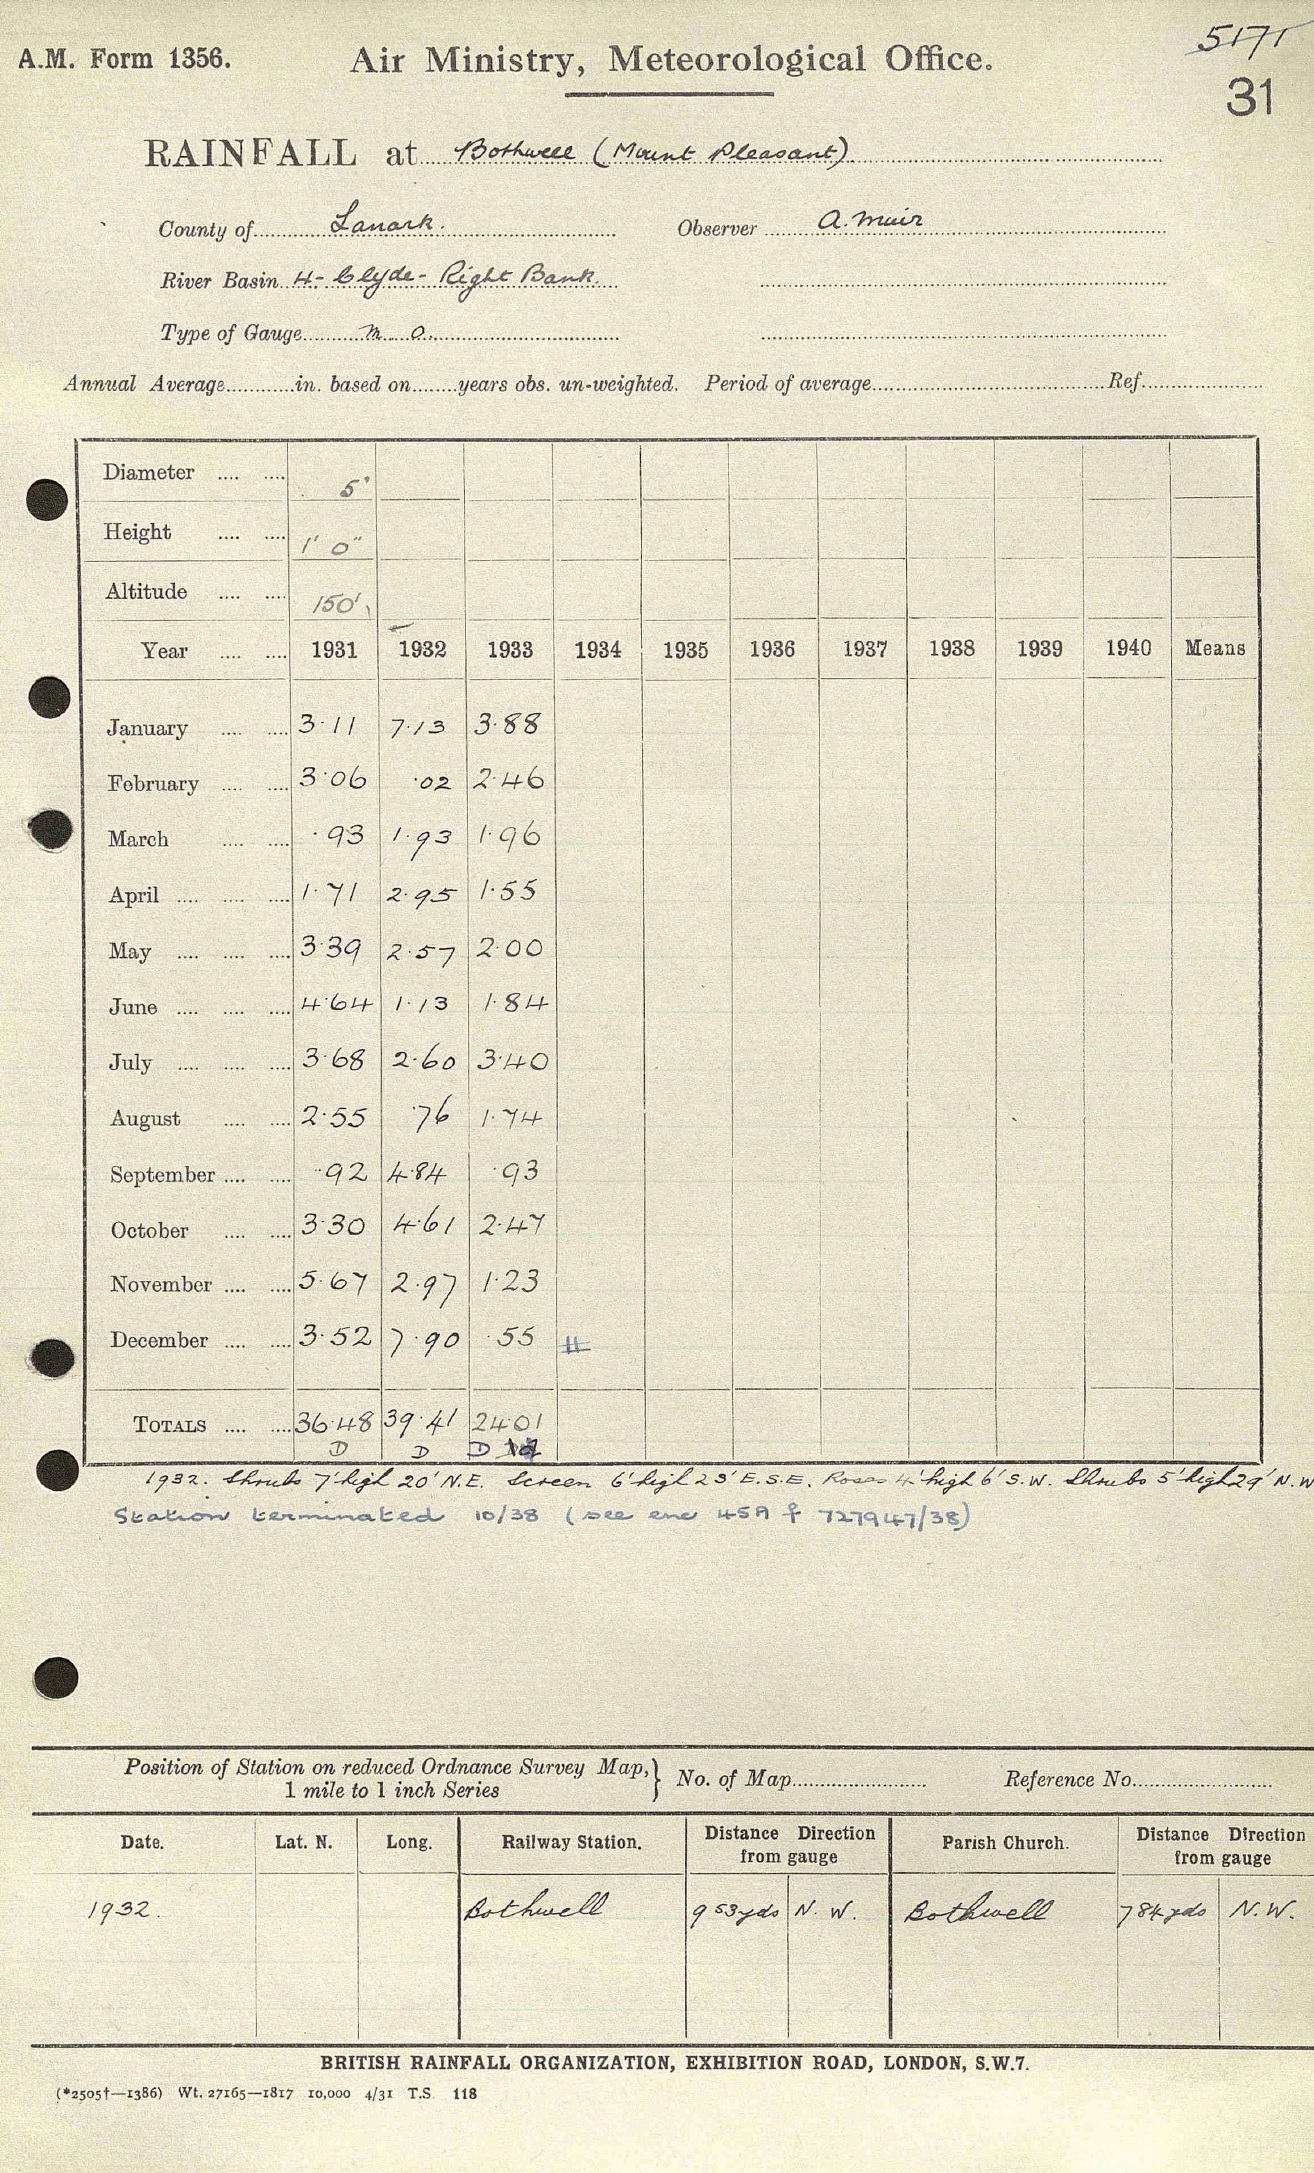 A.M. Form 1356.
Air Ministry, Meteorological Office.
5171
31
RAINFALL at Bothwell (Mount Pleasant)
County of Lanark. Observer A. Muir
River Basin 4 - Clyde - Right Bank.
Type of Gauge M.O.
Annual Average in. based on years obs. un-weighted. Period of average Ref.
Diameter 5"
Height 1' 0"
Altitude 150'
Year 1931 1932 1933 1934 1935 1936 1937 1938 1939 1940 Means
January 3.11 7.13 3.88
February 3.06 .02 2.46
March .93 1.93 1.96
April 1.71 2.95 1.55
May 3.39 2.57 2.00
June 4.64 1.13 1.84
July 3.68 2.60 3.40
August 2.55 .76 1.74
September .92 4.84 .93
October 3.30 4.61 2.47
November 5.67 2.97 1.23
December 3.52 7.90 .55
TOTALS 36.48 39.41 24.01
D D D
1932. Shrubs 7' high 20' N.E. Screen 6' high 23' E.S.E. Roses 4' high 6' S.W. Shrubs 5' high 29' N.W
Station terminated 10/38 (see enc 45A f 727947/38)
Position of Station on reduced Ordnance Survey Map, 1 mile to 1 inch Series } No. of Map Reference No.
Date. Lat. N. Long. Railway Station. Distance Direction from gauge Parish Church. Distance Direction from gauge
1932. Bothwell 953 yds N.W. Bothwell 784 yds N.W.
BRITISH RAINFALL ORGANIZATION, EXHIBITION ROAD, LONDON, S.W.7.
(*2505†—1386) Wt. 27165—1817 10,000 4/31 T.S. 118